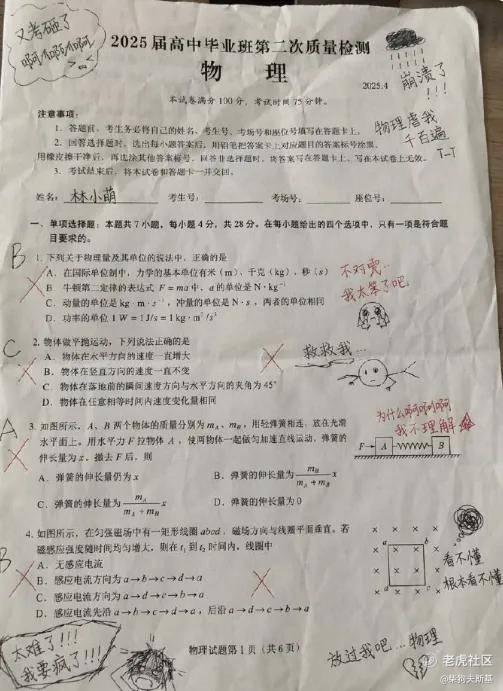 又考砸了
啊啊啊啊
2025届高中毕业班第二次质量检测
物 理
2025.4
崩溃了
!!!
本试卷满分100分，考试时间75分钟。
物理虐我
千百遍
T-T
注意事项：
1. 答题前，考生务必将自己的姓名、考生号、考场号和座位号填写在答题卡上。
2. 回答选择题时，选出每小题答案后，用铅笔把答案卡上对应题目的答案标号涂黑，
用橡皮擦干净后，再选涂其他答案标号。回答非选择题时，将答案写在答题卡上。写在本试卷上无效。
3. 考试结束后，将本试卷和答题卡一并交回。
姓名： 林小萌 考生号： 考场号： 座位号：
一、单项选择题：本题共7小题，每小题4分，共28分。在每小题给出的四个选项中，只有一项是符合题
目要求的。
B
1. 下列关于物理量及其单位的说法中，正确的是
A. 在国际单位制中，力学的基本单位有米（m）、千克（kg）、秒（s）
B. 牛顿第二定律的表达式 F = ma 中，a 的单位是 N·kg⁻¹
C. 动量的单位是 kg·m·s⁻¹，冲量的单位是 N·s，两者的单位相同
D. 功率的单位 1 W = 1 J/s = 1 kg·m²/s³
不对呀…
我太笨了吧
C
2. 物体做平抛运动，下列说法正确的是
A. 物体在水平方向的速度一直增大
B. 物体在竖直方向的速度一直不变
C. 物体在落地前的瞬间速度方向与水平方向的夹角为45°
D. 物体在任意相等时间内速度变化量相同
救救我…
A
3. 如图所示，A、B 两个物体的质量分别为 mA、mB，用轻弹簧相连，放在光滑
水平面上。用水平力 F 拉物体 A，使两物体一起做匀加速直线运动，弹簧的
伸长量为 x。撤去 F 后，则
A. 弹簧的伸长量仍为 x
B. 弹簧的伸长量为 mB/(mA + mB) x
C. 弹簧的伸长量为 mA/(mA + mB) x
D. 弹簧的伸长量为 0
为什么啊啊啊啊
我不理解
F A B
B
4. 如图所示，在匀强磁场中有一矩形线圈 abcd，磁场方向与线圈平面垂直。若
磁感应强度随时间均匀增大，则在 t₁ 到 t₂ 时间内，线圈中
A. 无感应电流
B. 感应电流方向为 a→b→c→d→a
C. 感应电流方向为 a→d→c→b→a
D. 感应电流先沿 a→b→c→d→a，后沿 a→d→c→b→a
a b
d c
看不懂
根本看不懂
太难了!!!
我要疯了!!!
物理试题第1页（共6页）
放过我吧…物理
老虎社区
@柴狗夫斯基